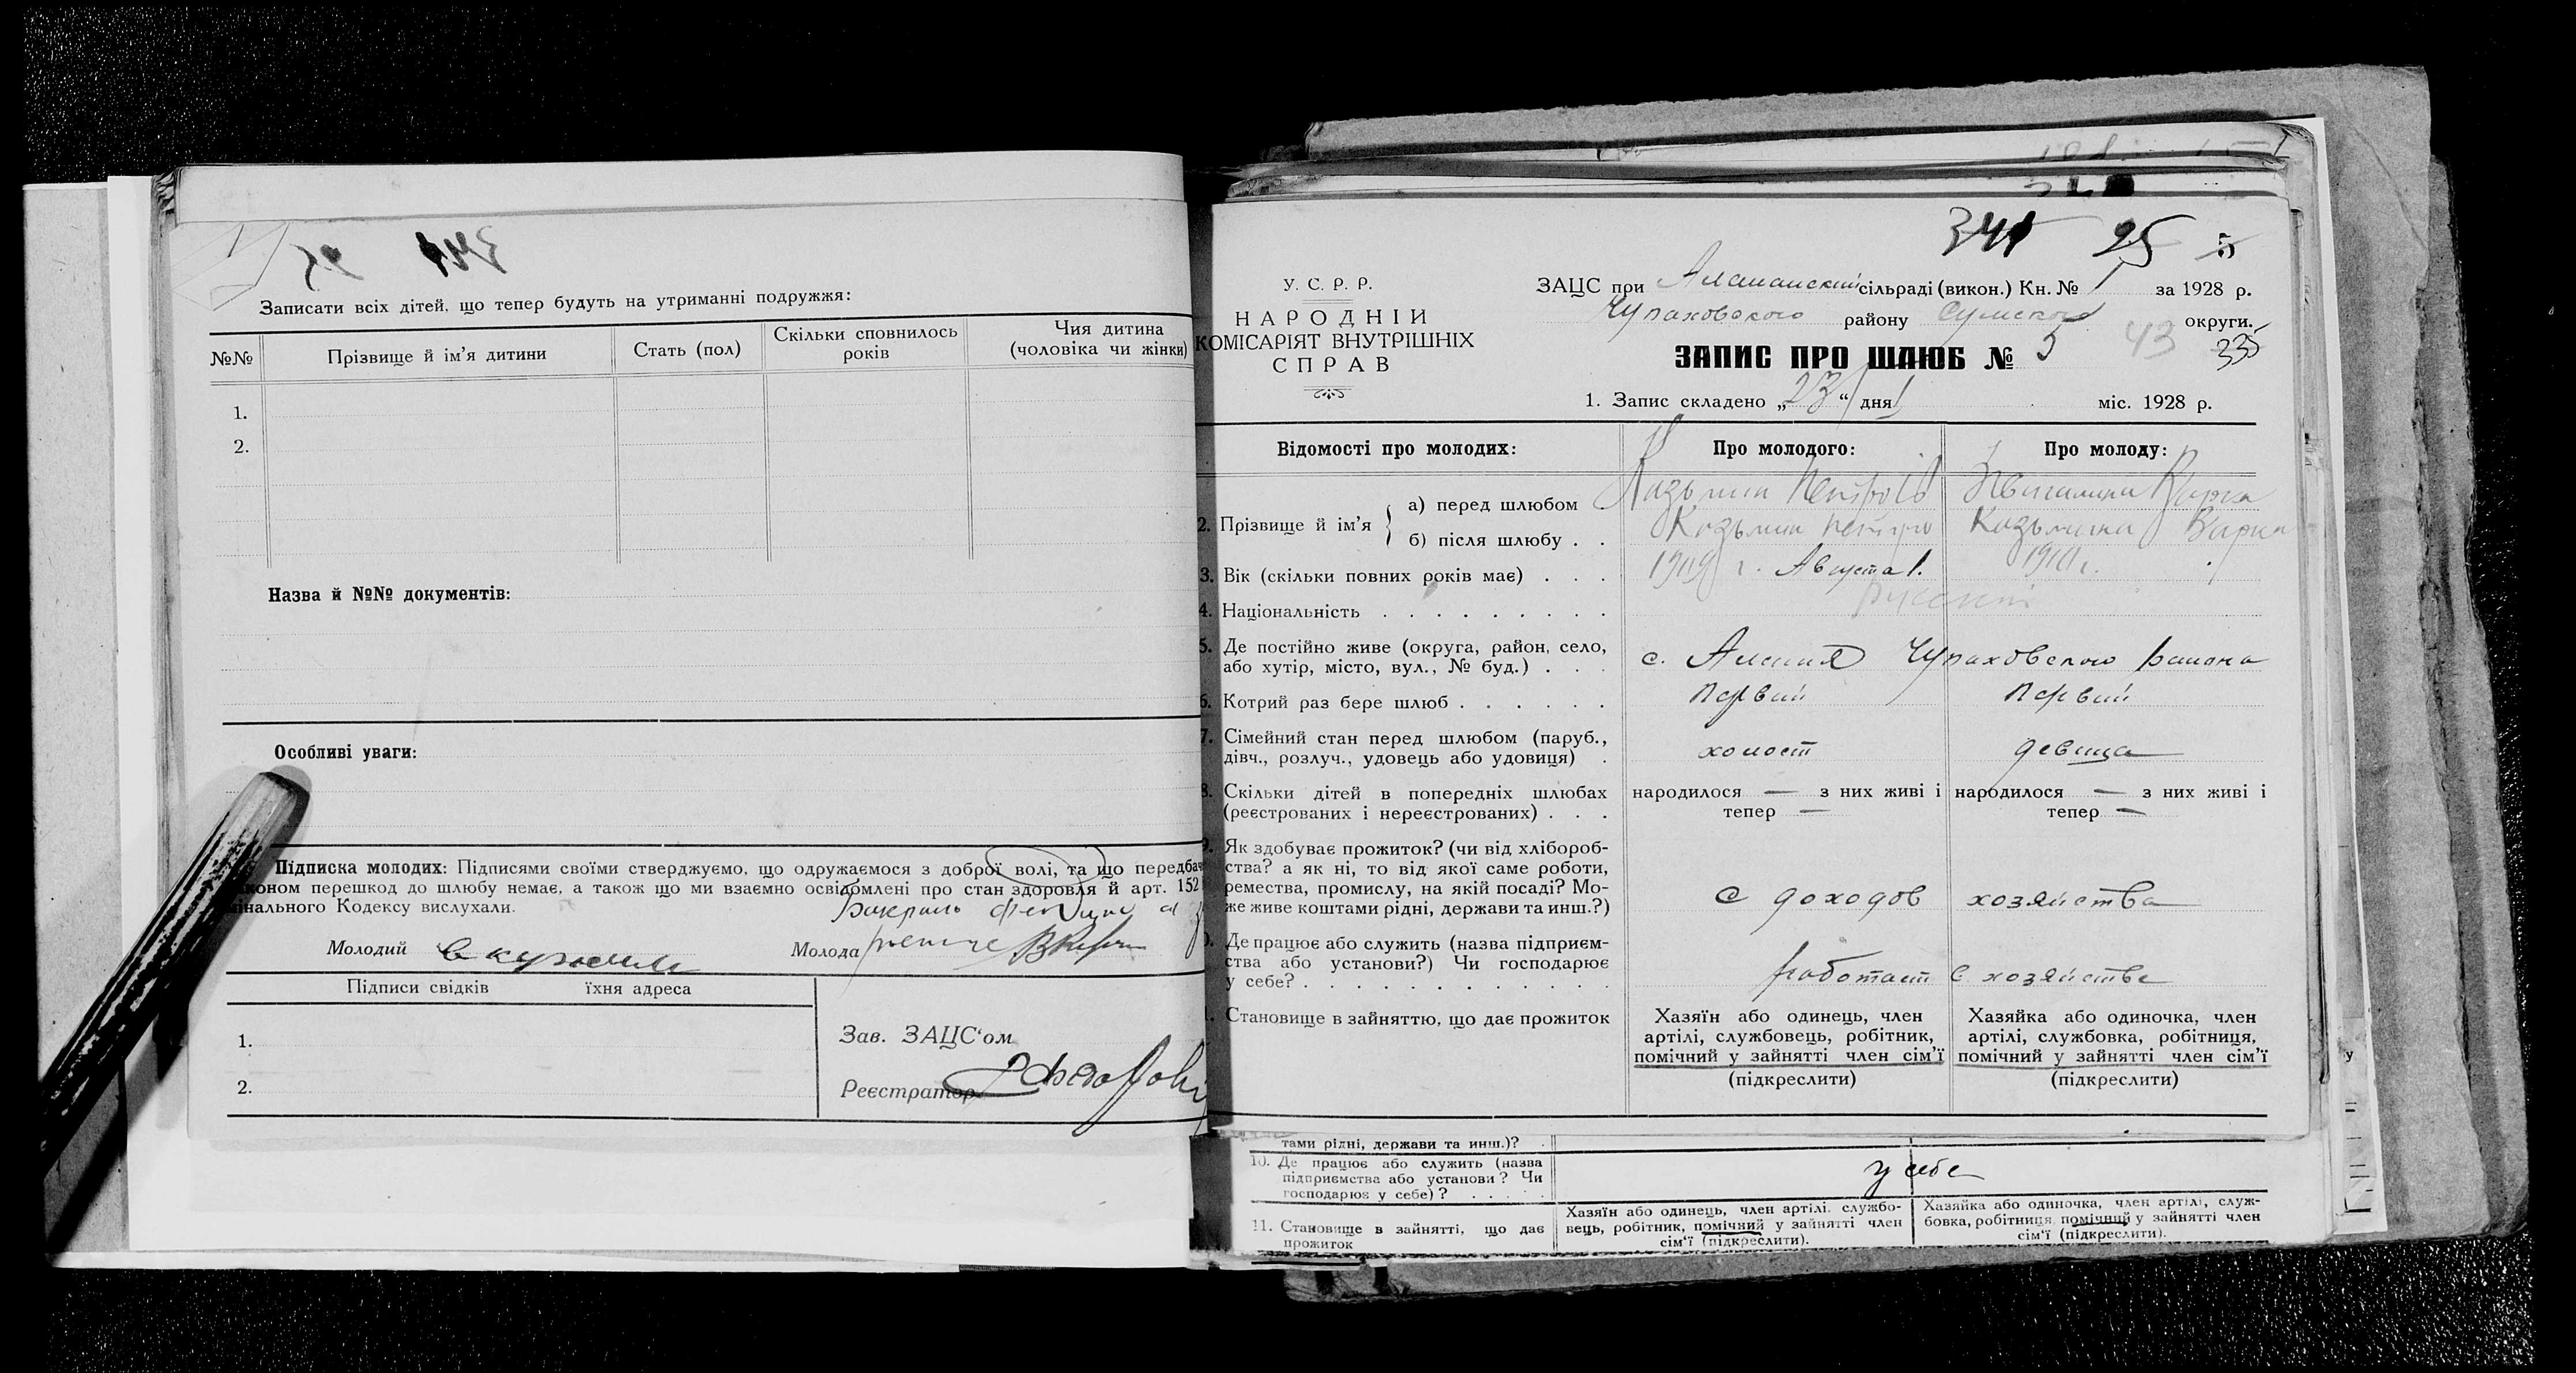 Записати всіх дітей, що тепер будуть на утриманні подружжя:
№№ Прізвище й ім’я дитини Стать (пол) Скільки сповнилось років Чия дитина (чоловіка чи жінки)
1.
2.
Назва й №№ документів:
Особливі уваги:
Підписка молодих: Підписями своїми стверджуємо, що одружаємося з доброї волі, та що передбач
коном перешкод до шлюбу немає, а також що ми взаємно освідомлені про стан здоровля й арт. 152
інального Кодексу вислухали.
Молодий Молода
Підписи свідків їхня адреса
1.
2.
Зав. ЗАЦС‘ом
Реєстратор
341 25 5
У. С. Р. Р.
НАРОДНІЙ
КОМІСАРІЯТ ВНУТРІШНІХ
СПРАВ
ЗАЦС при сільраді (викон.) Кн. № 1 за 1928 р.
Чупаховского району Сумского округи.
43 335
ЗАПИС ПРО ШЛЮБ № 5
1. Запис складено „23“ дня 1 міс. 1928 р.
Відомості про молодих: Про молодого: Про молоду:
2. Прізвище й ім’я
а) перед шлюбом Козьмин Петро Варка
б) після шлюбу . . Козьмин Петро Козьмина Варка
3. Вік (скільки повних років має) . . . 1909 г. Августа 1. 1910 г.
4. Національність . . . . . . . . . русский
5. Де постійно живе (округа, район, село,
або хутір, місто, вул., № буд.) . . . с. Чупаховского района
6. Котрий раз бере шлюб . . . . . . первий первий
7. Сімейний стан перед шлюбом (паруб.,
дівч., розлуч., удовець або удовиця) . холост девица
8. Скільки дітей в попередніх шлюбах
(реєстрованих і нереєстрованих) . . .
народилося — з них живі і
тепер —
народилося — з них живі і
тепер —
9. Як здобуває прожиток? (чи від хлібороб-
ства? а як ні, то від якої саме роботи,
ремества, промислу, на якій посаді? Мо-
же живе коштами рідні, держави та инш.?)
с доходов хозяйства
10. Де працює або служить (назва підприєм-
ства або установи?) Чи господарює
у себе? . . . . . . . . . . . . .
работает в хозяйстве
11. Становище в зайняттю, що дає прожиток
Хазяїн або одинець, член
артілі, службовець, робітник,
помічний у зайнятті член сім’ї
(підкреслити)
Хазяйка або одиночка, член
артілі, службовка, робітниця,
помічний у зайнятті член сім’ї
(підкреслити)
тами рідні, держави та инш.)?
10. Де працює або служить (назва
підприємства або установи? Чи
господарює у себе)? . . . . .
у себе
11. Становище в зайнятті, що дає
прожиток
Хазяїн або одинець, член артілі. службо-
вець, робітник, помічний у зайнятті член
сім‘ї (підкреслити).
Хазяйка або одиночка, член артілі, служ-
бовка, робітниця, помічний у зайнятті член
сім‘ї (підкреслити).